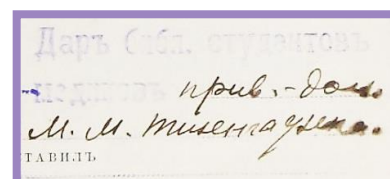 Даръ библ. студентов
медиков
прив.-доц.
М. М. Тизенгаузена.
ТАВИЛЪ